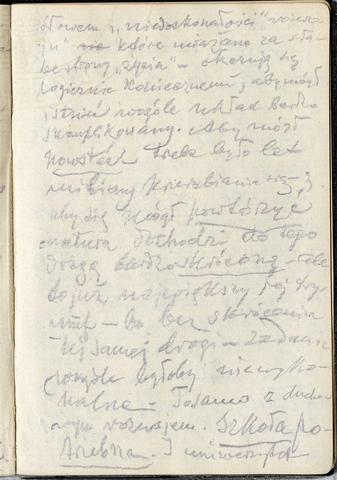 Słowem, „niedoskonałości" rozwo
ju które uważano za sła
be strony „życia" – okazują się
logicznie koniecznemi, aby mógł
istnieć wogóle układ bardzo
skomplikowany. Aby mógł
powstać trzeba było lat
miliony
aby się mógł powtórzyć
natura dochodzi do tego
drogą bardzo skróconą –
to już największy jej try
umf – bo bez skrócenia
tej samej drogi zadanie
wogóle byłoby niewyko
nalne – To samo z ducho
wym rozwojem. Szkoła po
trzebna. I uniwersytet